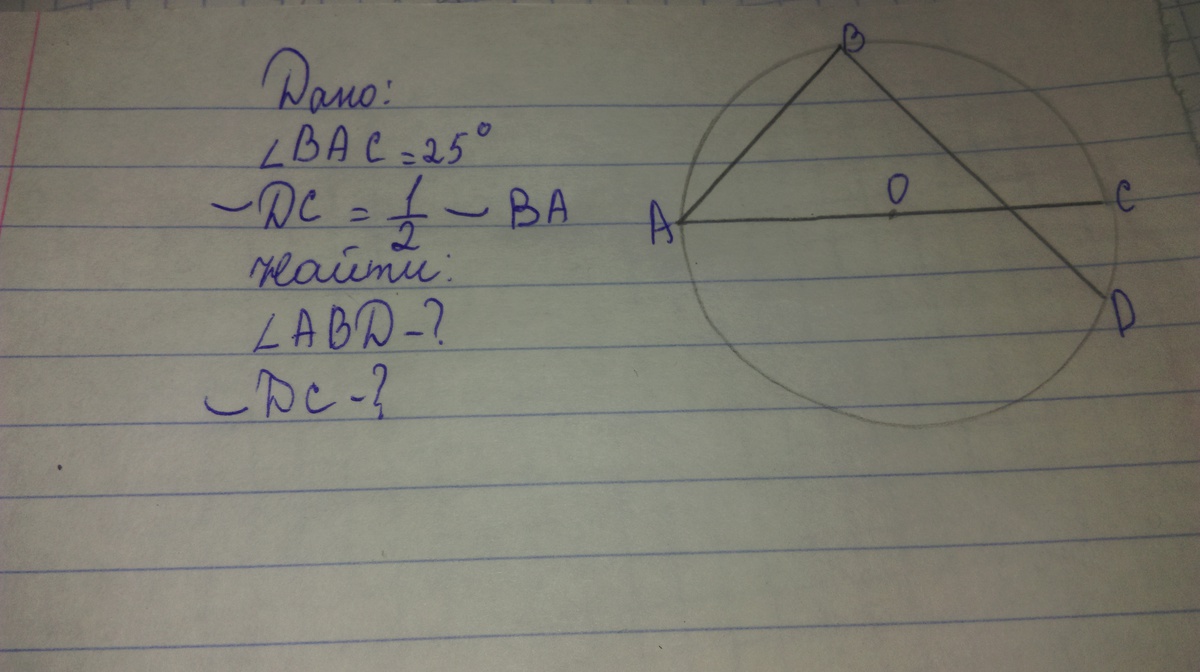 Дано:
∠BAC = 25°
◡DC = 1/2 ◡BA
Найти:
∠ABD - ?
◡DC - ?
B
O
C
A
D